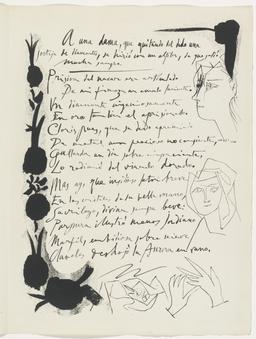 A una dama, que quitándose del dedo una
sortija de diamantes, se hirió con un alfiler, de que salió
mucha sangre.
Prisión del nácar era articulado
De mi firmeza un émulo luciente,
Un diamante ingeniosamente
En oro también él aprisionado.
Cloris, pues, que su dedo apremiado
De metal, aun precioso no consiente,
Gallarda un día sobre impaciente,
Lo redimió del vínculo dorado.
Mas ay, que insidioso latón breve
En los cristales de su bella mano,
Sacrílego, divina sangre bebe:
Púrpura ilustró menos Indiano
Marfil, envidiosa sobre nieve
Claveles deshojó la Aurora en vano.